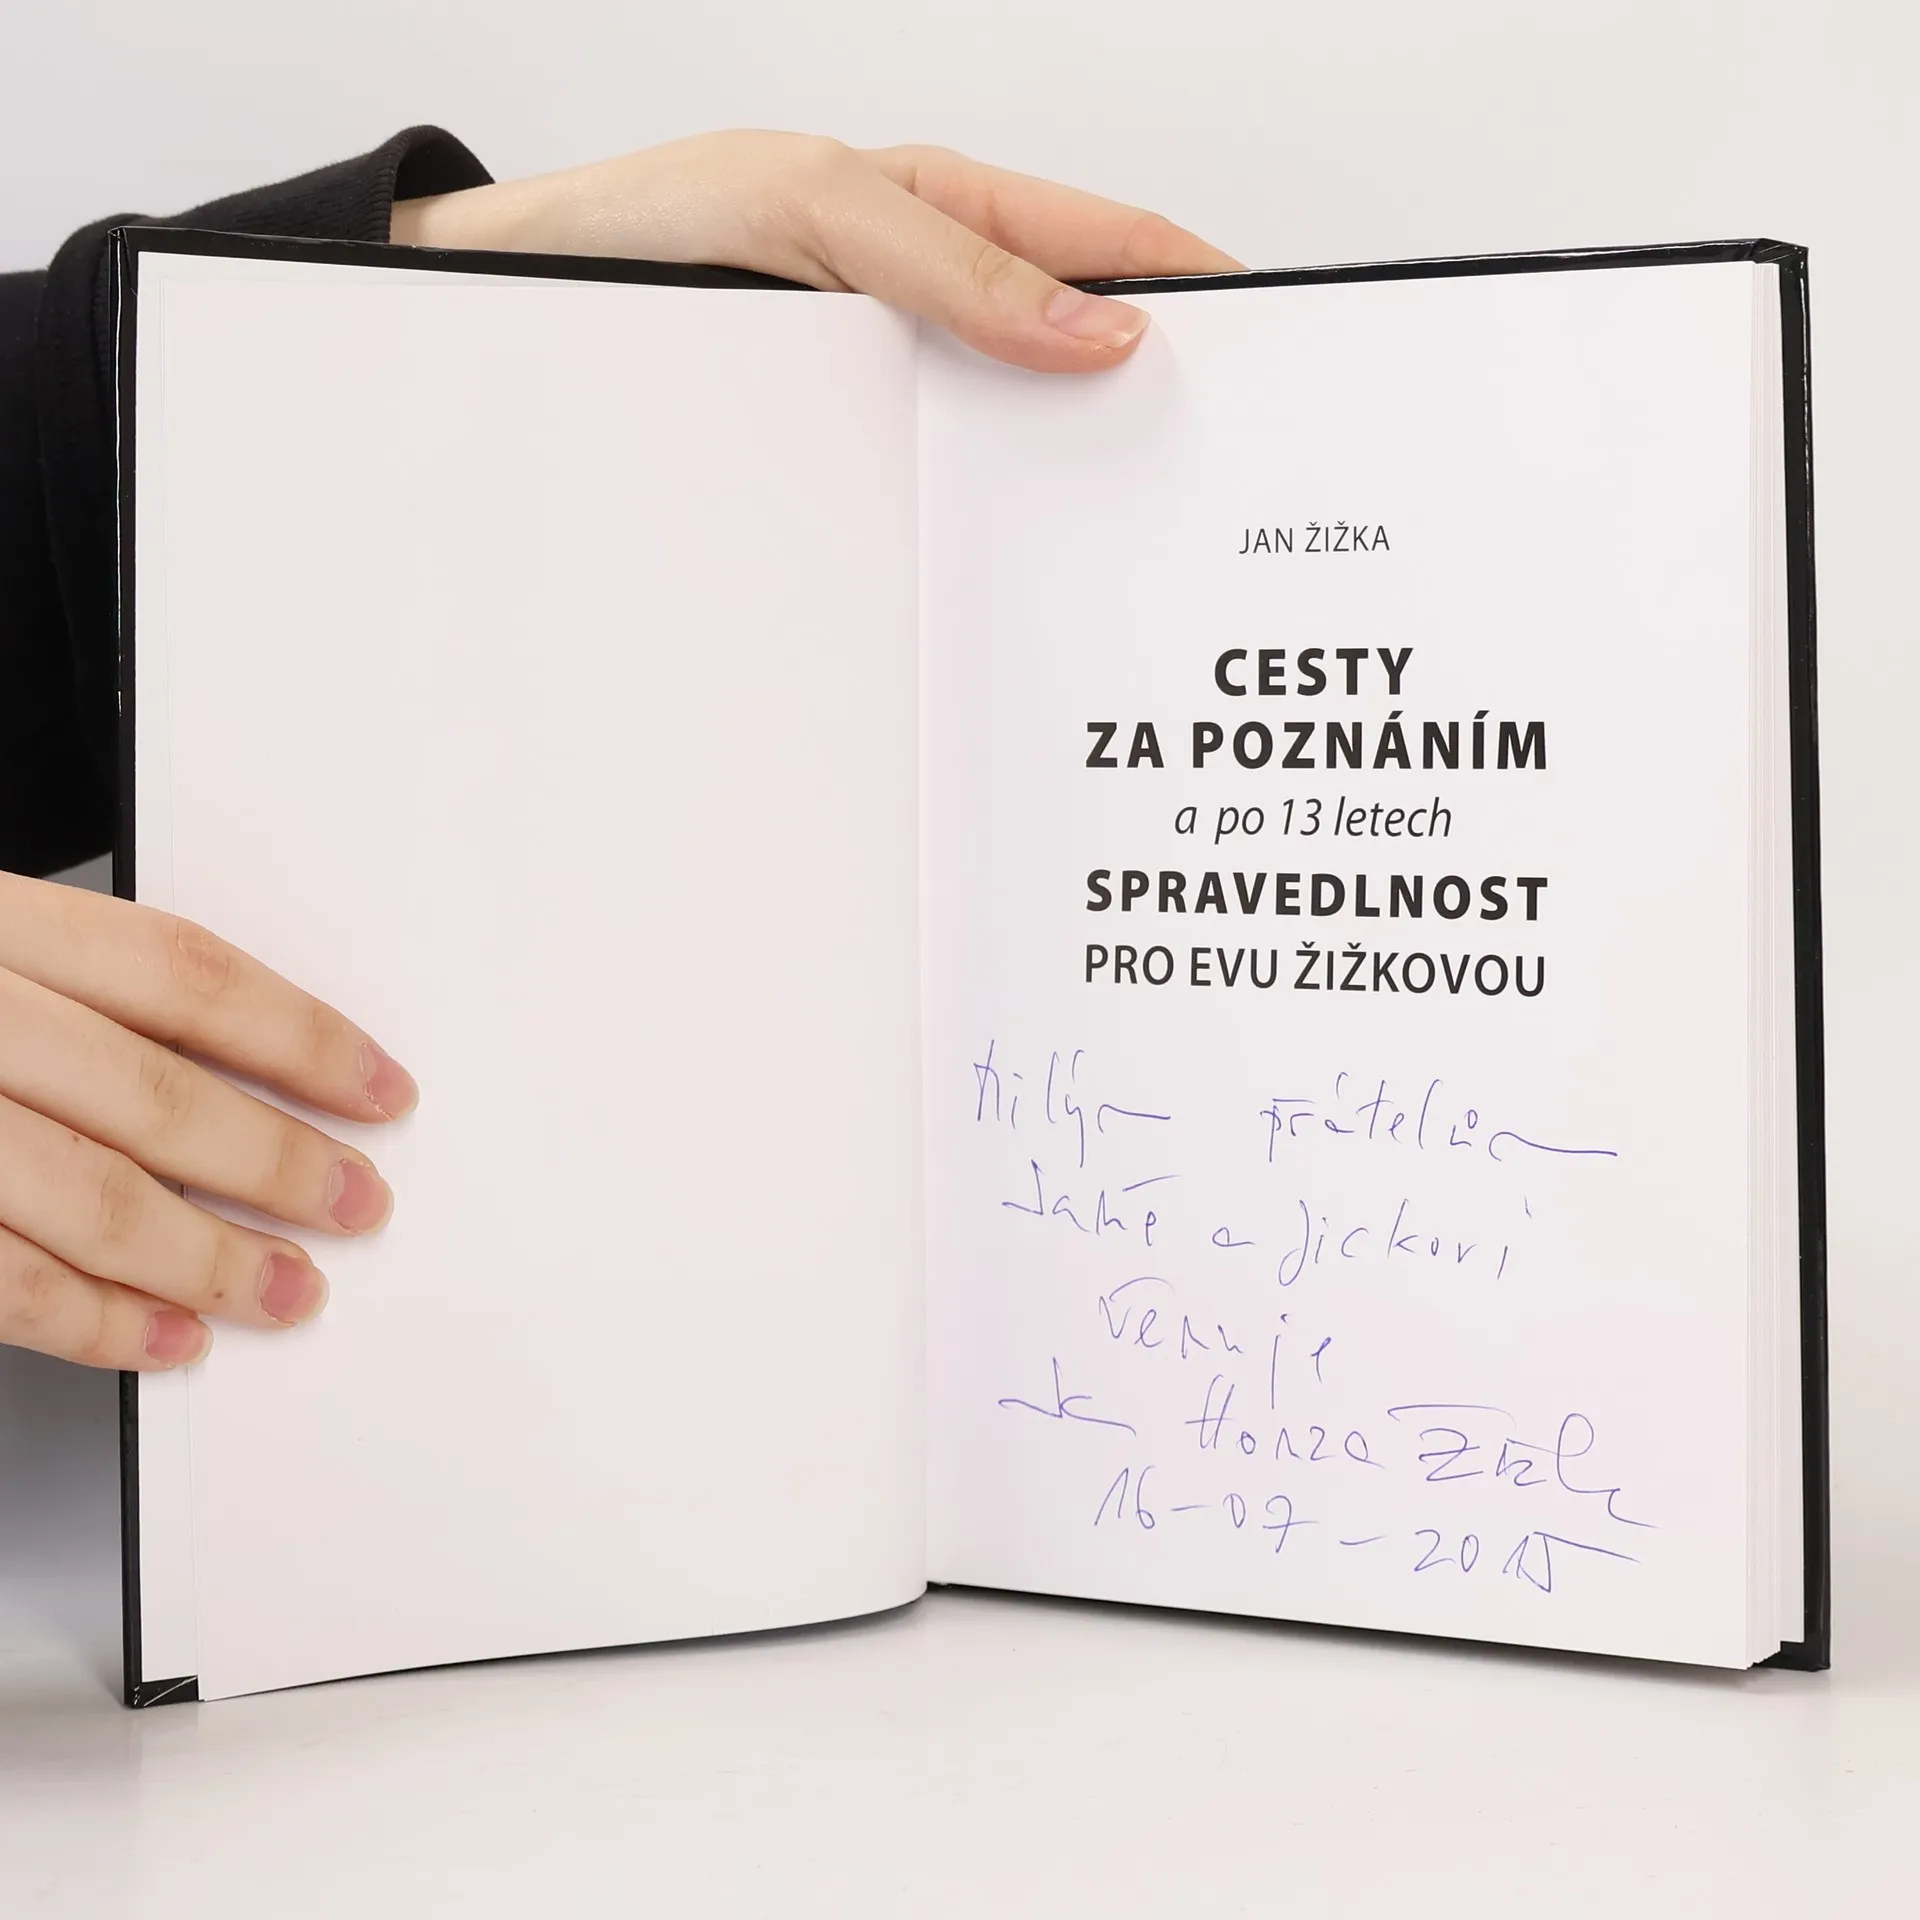 JAN ŽIŽKA
CESTY
ZA POZNÁNÍM
a po 13 letech
SPRAVEDLNOST
PRO EVU ŽIŽKOVOU
Milým přátelům
a Jickovi
věnuje
Honza Žižka
16-07-2015